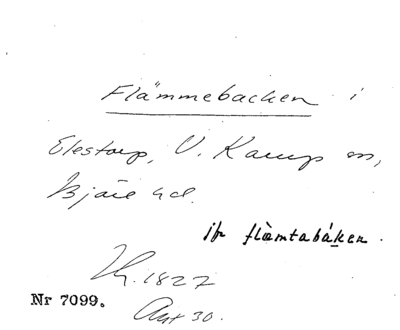 Flämmebacken i
Elestorp, V. Karup sn,
Bjäre hd.
jfr flàmtabák̲en.
1827
Nr 7099.
Akt 30.